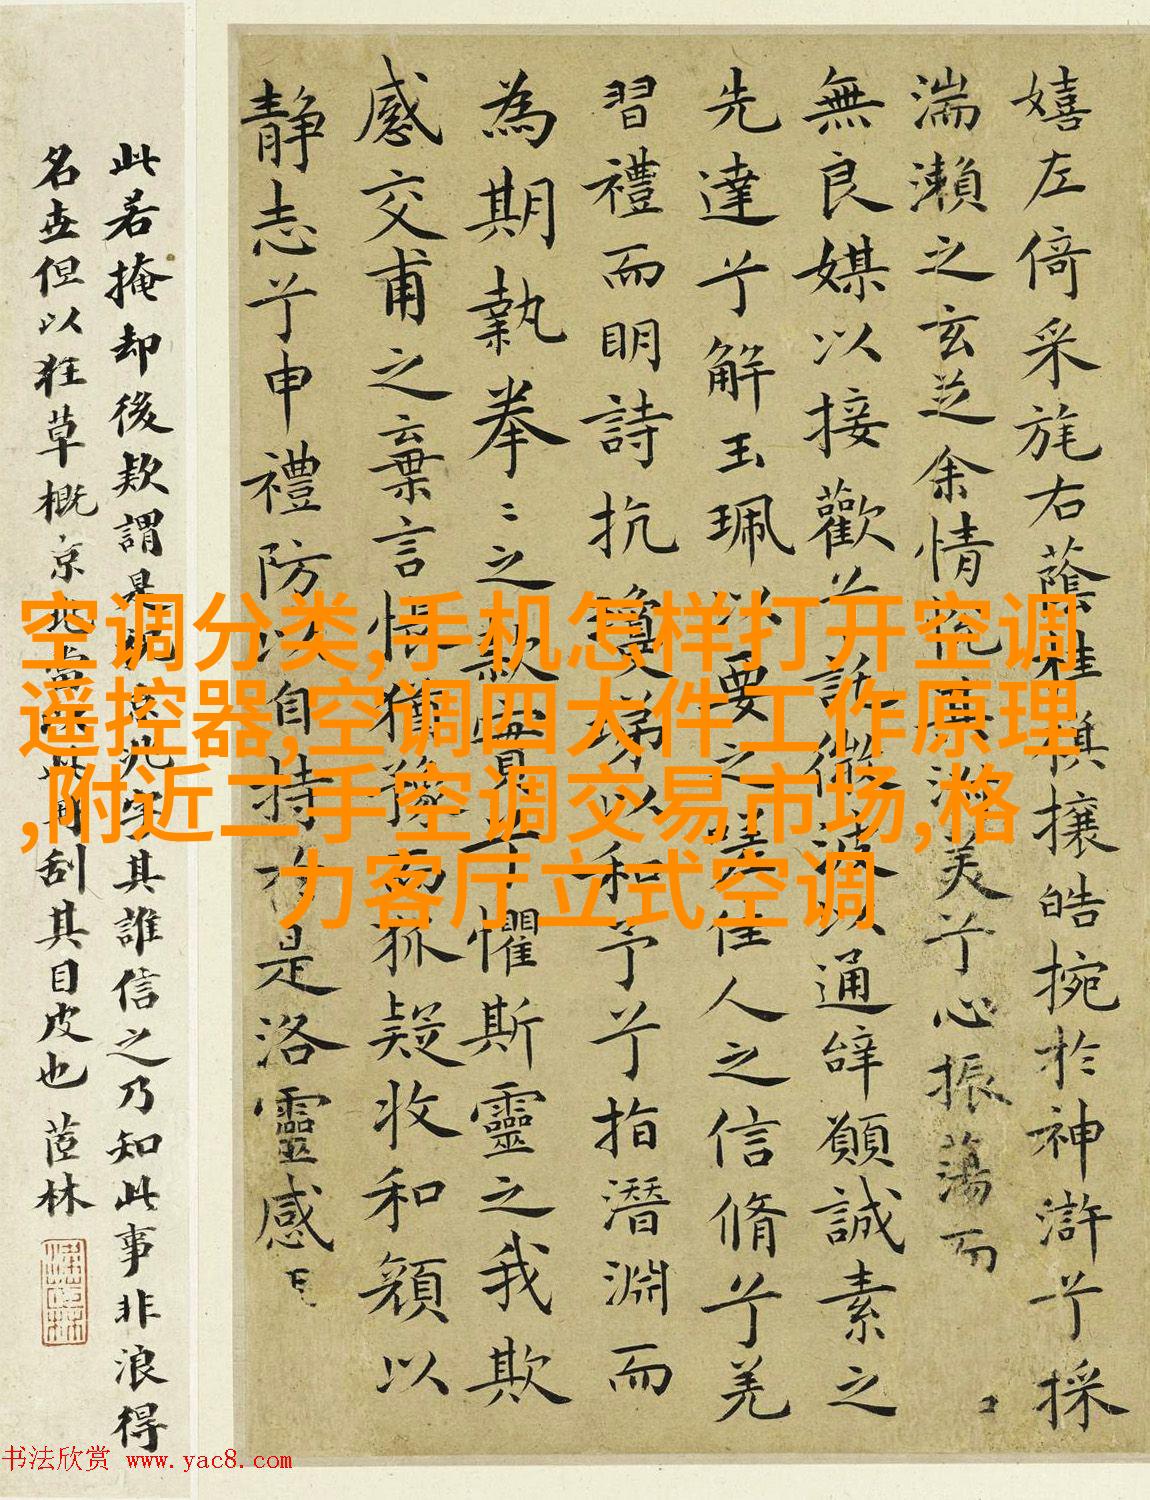 嬉左倚采旄右蔭桂旗攘皓捥於神滸兮採
湍瀨之玄芝余情悅其淑美兮心振蕩而
無良媒以接歡兮託微波以通辝願誠素之
先達兮解玉珮以要之嗟佳人之信脩兮羌
習禮而明詩抗瓊珶以和予兮指潛淵而
為期執拳〻之款實兮懼斯靈之我欺
感交甫之棄言悵猶豫而狐疑收和顏以
靜志兮申禮防以自持於是洛靈感
此若掩却後欵謂是
其誰信之乃知此事非浪得
名世但以狂草概京
刮其目皮也 茝林
空调分类,手机怎样打开空调
遥控器,空调四大件工作原理
,附近二手空调交易市场,格
力客厅立式空调
书法欣赏 www.yac8.com